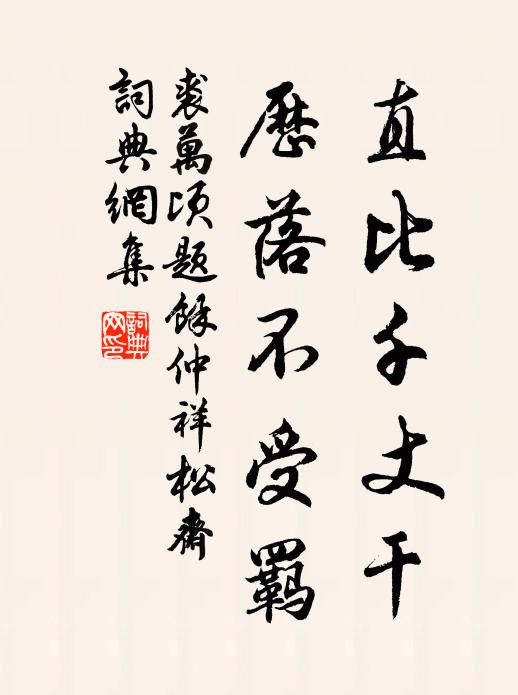 直比千丈干
歷落不受羈
裘萬頃題餘仲祥松齋
詞典網集
詞典網印